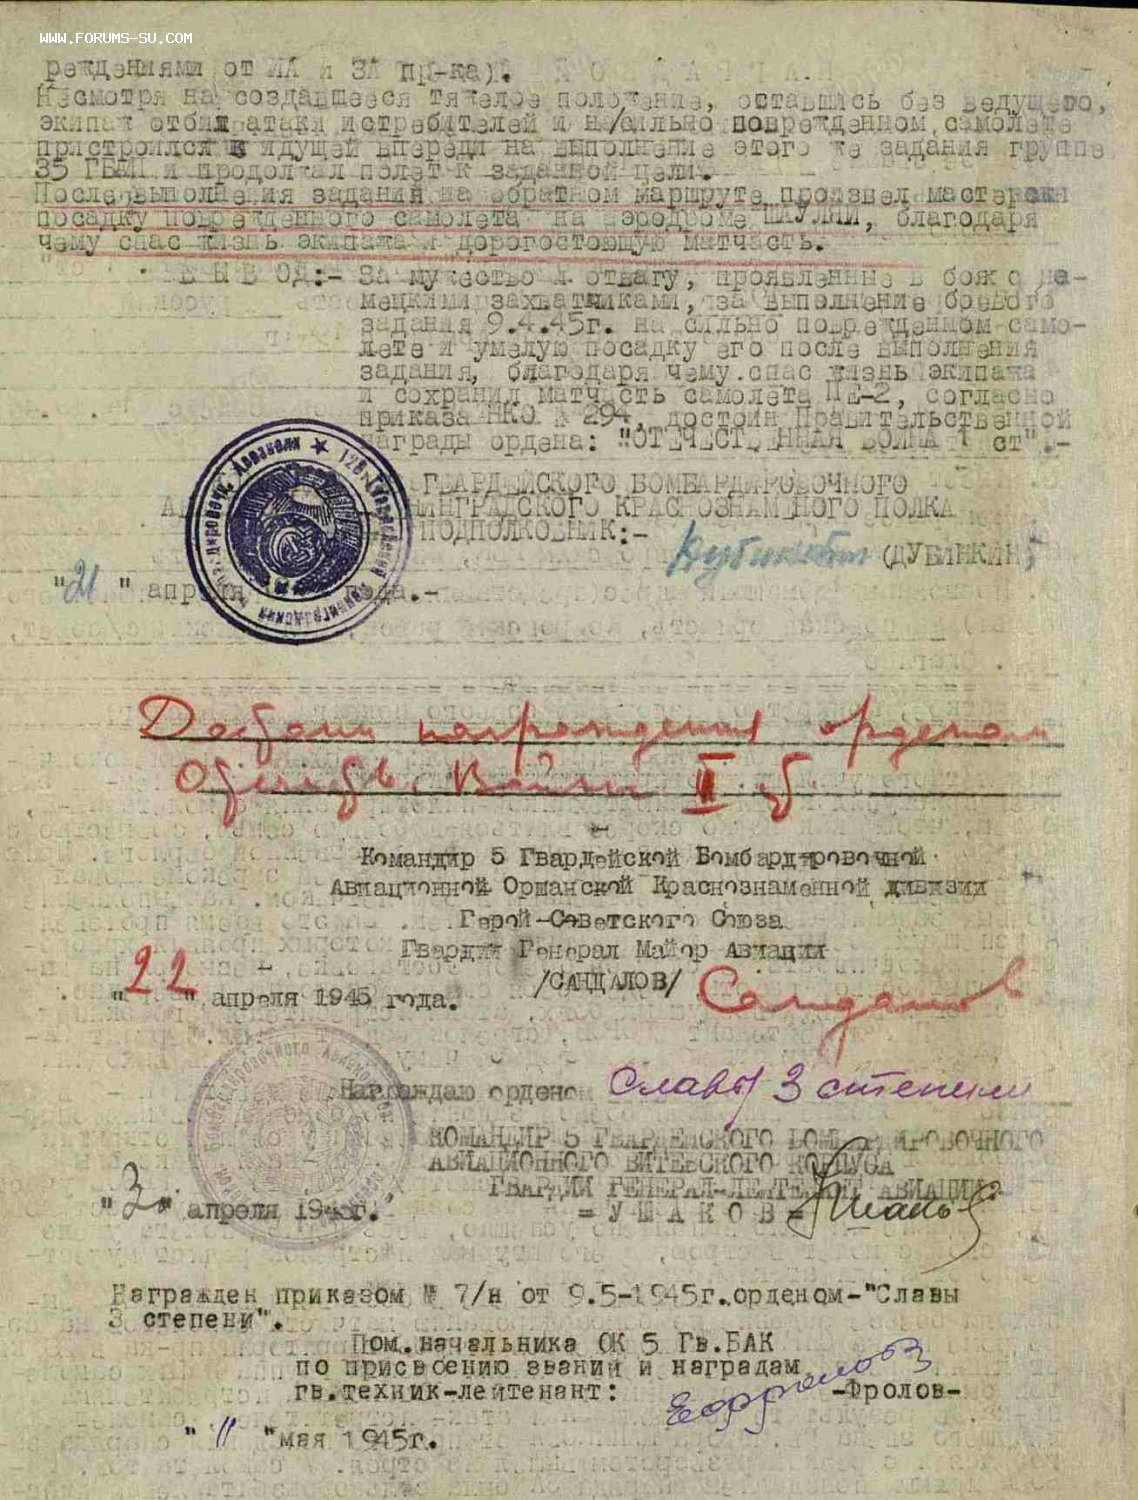 WWW.FORUMS-SU.COM
реждениями от ИА и ЗА пр-ка).
Несмотря на создавшееся тяжелое положение, оставшись без ведущего,
экипаж отбил атаки истребителей и на/сильно поврежденном самолете
пристроился к идущей впереди на выполнение этого же задания группе
35 ГБАП и продолжал полет к заданной цели.
После выполнения задания на обратном маршруте произвел мастерски
посадку поврежденного самолета на аэродроме ШАУЛЯЙ, благодаря
чему спас жизнь экипажа и дорогостоющую матчасть.
ВЫВОД:- За мужество и отвагу, проявленные в боях с не-
мецкими захватчиками, за выполнение боевого
задания 9.4.45г. на сильно поврежденном само-
лете и умелую посадку его после выполнения
задания, благодаря чему спас жизнь экипажа
и сохранил матчасть самолета ПЕ-2, согласно
приказа НКО № 294, достоин Правительственной
награды ордена: "ОТЕЧЕСТВЕННАЯ ВОЙНА 1 ст".-
ГВАРДЕЙСКОГО БОМБАРДИРОВОЧНОГО
НИНГРАДСКОГО КРАСНОЗНАМЕННОГО ПОЛКА
ПОДПОЛКОВНИК:- (ДУБИНКИН)
"21" апреля года.-
Достоин награждения орденом
Отечеств. Войны II ст.
Командир 5 Гвардейской Бомбардировочной
Авиационной Оршанской Краснознаменной дивизии
Герой Советского Союза
Гвардии Генерал Майор Авиации
/САНДАЛОВ/ Сандалов
"22" апреля 1945 года.
Награждаю орденом Славы 3 степени
КОМАНДИР 5 ГВАРДЕЙСКОГО БОМБАРДИРОВОЧНОГО
АВИАЦИОННОГО ВИТЕБСКОГО КОРПУСА
ГВАРДИИ ГЕНЕРАЛ-ЛЕЙТЕНАНТ АВИАЦИИ:-
"30" апреля 1945г. =УШАКОВ= Ушаков
Награжден приказом № 7/н от 9.5-1945г. орденом-"Славы
3 степени".
Пом.начальника ОК 5 Гв.БАК
по присвоению званий и наградам
гв.техник-лейтенант: -Фролов-
"11" мая 1945г.